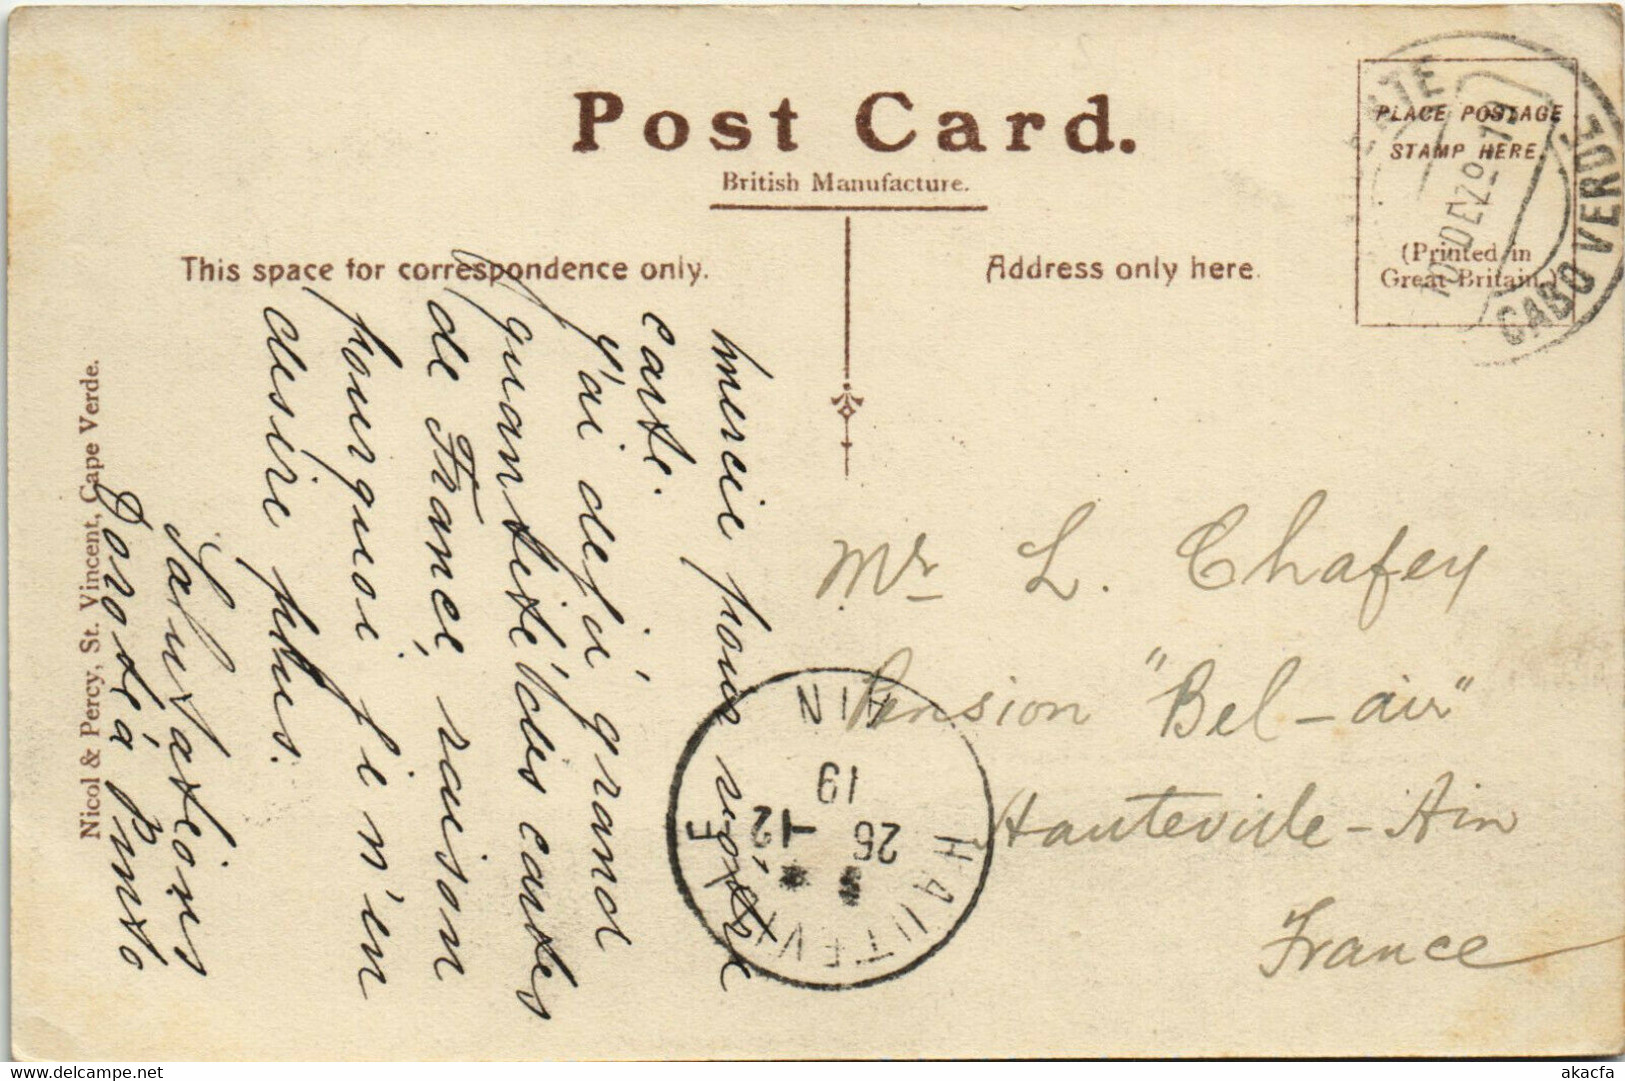 Post Card.
British Manufacture.
This space for correspondence only.
Address only here.
PLACE POSTAGE
STAMP HERE.
(Printed in
Great Britain.)
CABO VERDE
10 DEZ
Nicol & Percy, St. Vincent, Cape Verde.
merci pour vôtre
carte.
J'ai déjà grand
quantité des cartes
de France, raison
pourquoi je n'en
desire plus.
Salutations
Dorotéa Pinto
Mr L. Chafey
Pension "Bel-air"
Hauteville-Ain
France
HAUTEVILLE
AIN
19
26 -12
delcampe.net
akacfa